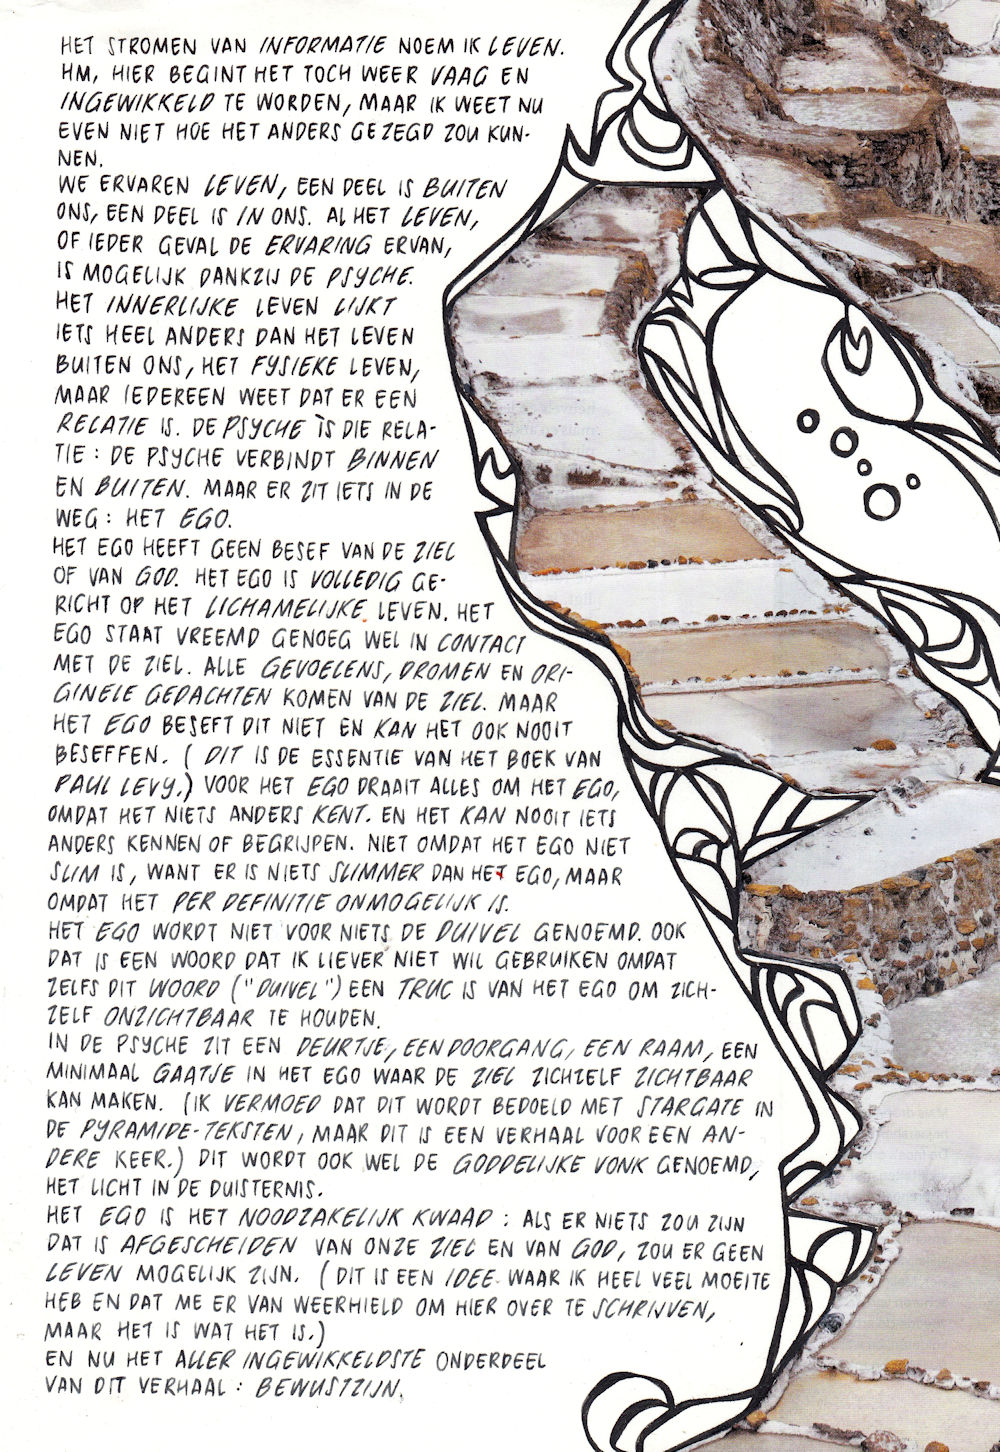 HET STROMEN VAN INFORMATIE NOEM IK LEVEN.
HM, HIER BEGINT HET TOCH WEER VAAG EN
INGEWIKKELD TE WORDEN, MAAR IK WEET NU
EVEN NIET HOE HET ANDERS GEZEGD ZOU KUN-
NEN.
WE ERVAREN LEVEN, EEN DEEL IS BUITEN
ONS, EEN DEEL IS IN ONS. AL HET LEVEN,
OF IEDER GEVAL DE ERVARING ERVAN,
IS MOGELIJK DANKZIJ DE PSYCHE.
HET INNERLIJKE LEVEN LIJKT
IETS HEEL ANDERS DAN HET LEVEN
BUITEN ONS, HET FYSIEKE LEVEN,
MAAR IEDEREEN WEET DAT ER EEN
RELATIE IS. DE PSYCHE ÌS DIE RELA-
TIE: DE PSYCHE VERBINDT BINNEN
EN BUITEN. MAAR ER ZIT IETS IN DE
WEG: HET EGO.
HET EGO HEEFT GEEN BESEF VAN DE ZIEL
OF VAN GOD. HET EGO IS VOLLEDIG GE-
RICHT OP HET LICHAMELIJKE LEVEN. HET
EGO STAAT VREEMD GENOEG WEL IN CONTACT
MET DE ZIEL. ALLE GEVOELENS, DROMEN EN ORI-
GINELE GEDACHTEN KOMEN VAN DE ZIEL. MAAR
HET EGO BESEFT DIT NIET EN KAN HET OOK NOOIT
BESEFFEN. (DIT IS DE ESSENTIE VAN HET BOEK VAN
PAUL LEVY.) VOOR HET EGO DRAAIT ALLES OM HET EGO,
OMDAT HET NIETS ANDERS KENT. EN HET KAN NOOIT IETS
ANDERS KENNEN OF BEGRIJPEN. NIET OMDAT HET EGO NIET
SLIM IS, WANT ER IS NIETS SLIMMER DAN HET EGO, MAAR
OMDAT HET PER DEFINITIE ONMOGELIJK IS.
HET EGO WORDT NIET VOOR NIETS DE DUIVEL GENOEMD. OOK
DAT IS EEN WOORD DAT IK LIEVER NIET WIL GEBRUIKEN OMDAT
ZELFS DIT WOORD ("DUIVEL") EEN TRUC IS VAN HET EGO OM ZICH-
ZELF ONZICHTBAAR TE HOUDEN.
IN DE PSYCHE ZIT EEN DEURTJE, EEN DOORGANG, EEN RAAM, EEN
MINIMAAL GAATJE IN HET EGO WAAR DE ZIEL ZICHZELF ZICHTBAAR
KAN MAKEN. (IK VERMOED DAT DIT WORDT BEDOELD MET STARGATE IN
DE PYRAMIDE-TEKSTEN, MAAR DIT IS EEN VERHAAL VOOR EEN AN-
DERE KEER.) DIT WORDT OOK WEL DE GODDELIJKE VONK GENOEMD,
HET LICHT IN DE DUISTERNIS.
HET EGO IS HET NOODZAKELIJK KWAAD: ALS ER NIETS ZOU ZIJN
DAT IS AFGESCHEIDEN VAN ONZE ZIEL EN VAN GOD, ZOU ER GEEN
LEVEN MOGELIJK ZIJN. (DIT IS EEN IDEE WAAR IK HEEL VEEL MOEITE
HEB EN DAT ME ER VAN WEERHIELD OM HIER OVER TE SCHRIJVEN,
MAAR HET IS WAT HET IS.)
EN NU HET ALLER INGEWIKKELDSTE ONDERDEEL
VAN DIT VERHAAL: BEWUSTZIJN.